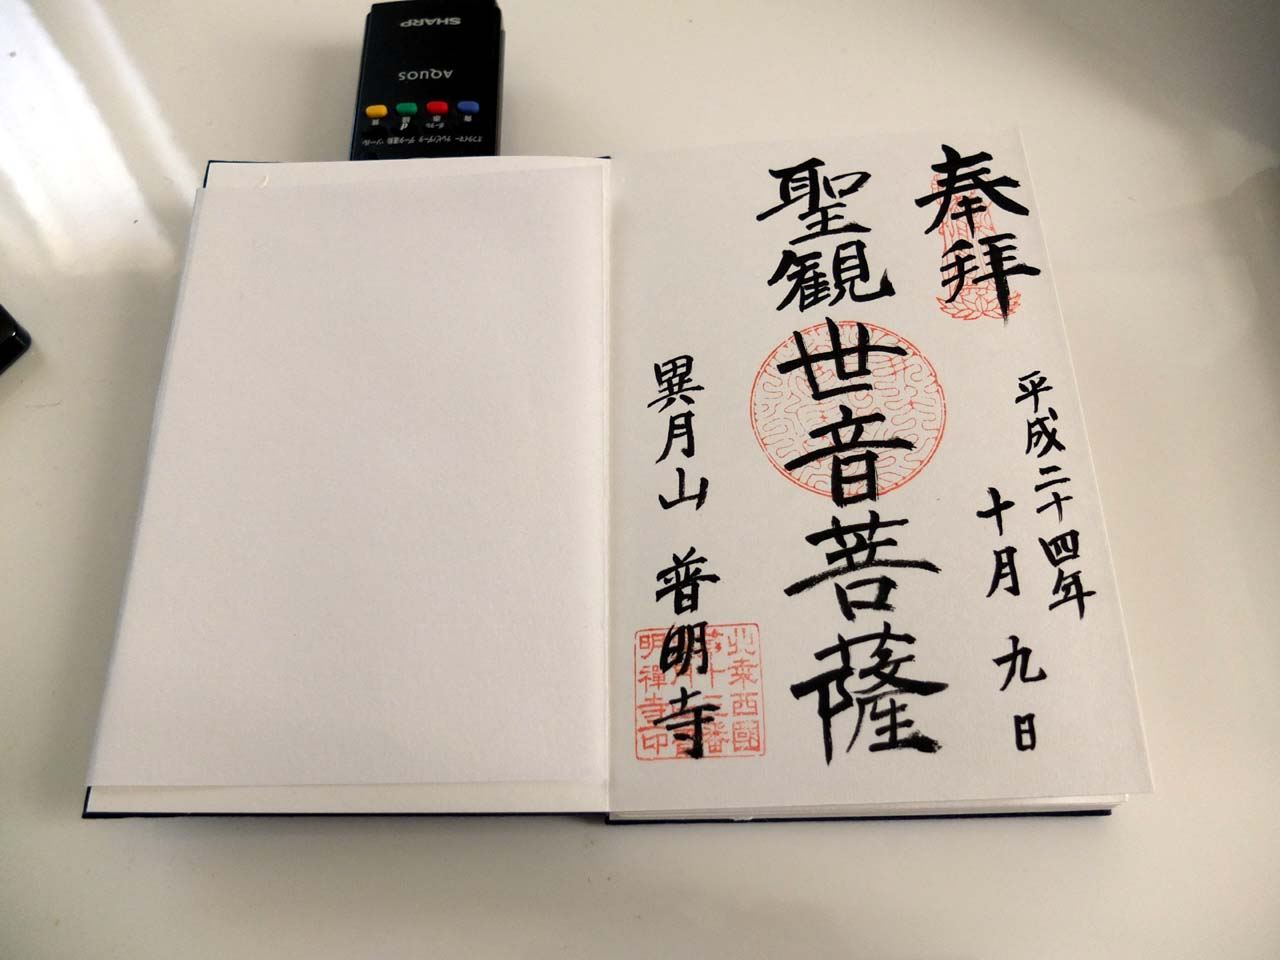 奉拝
平成二十四年
十月九日
聖観世音菩薩
異月山 普明寺
北桑西國
第十三番
明禅寺印
SHARP
AQUOS